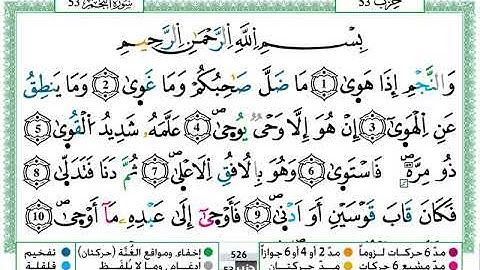 حزب 53
سورة النجم 53
بِسْمِ اللَّهِ الرَّحْمَٰنِ الرَّحِيمِ
وَالنَّجْمِ إِذَا هَوَىٰ ① مَا ضَلَّ صَاحِبُكُمْ وَمَا غَوَىٰ ② وَمَا يَنطِقُ
عَنِ الْهَوَىٰ ③ إِنْ هُوَ إِلَّا وَحْيٌ يُوحَىٰ ④ عَلَّمَهُ شَدِيدُ الْقُوَىٰ ⑤
ذُو مِرَّةٍ فَاسْتَوَىٰ ⑥ وَهُوَ بِالْأُفُقِ الْأَعْلَىٰ ⑦ ثُمَّ دَنَا فَتَدَلَّىٰ ⑧
فَكَانَ قَابَ قَوْسَيْنِ أَوْ أَدْنَىٰ ⑨ فَأَوْحَىٰ إِلَىٰ عَبْدِهِ مَا أَوْحَىٰ ⑩
مدّ 6 حركات لزوماً مدّ 2 أو 4 أو 6 جوازاً 526 إخفاء، ومواقع الغُنَّة (حركتان) تفخيم
مدّ مشبع 6 حركات مدّ حركتان إدغام، وما لا يُلفَظ قلقلة